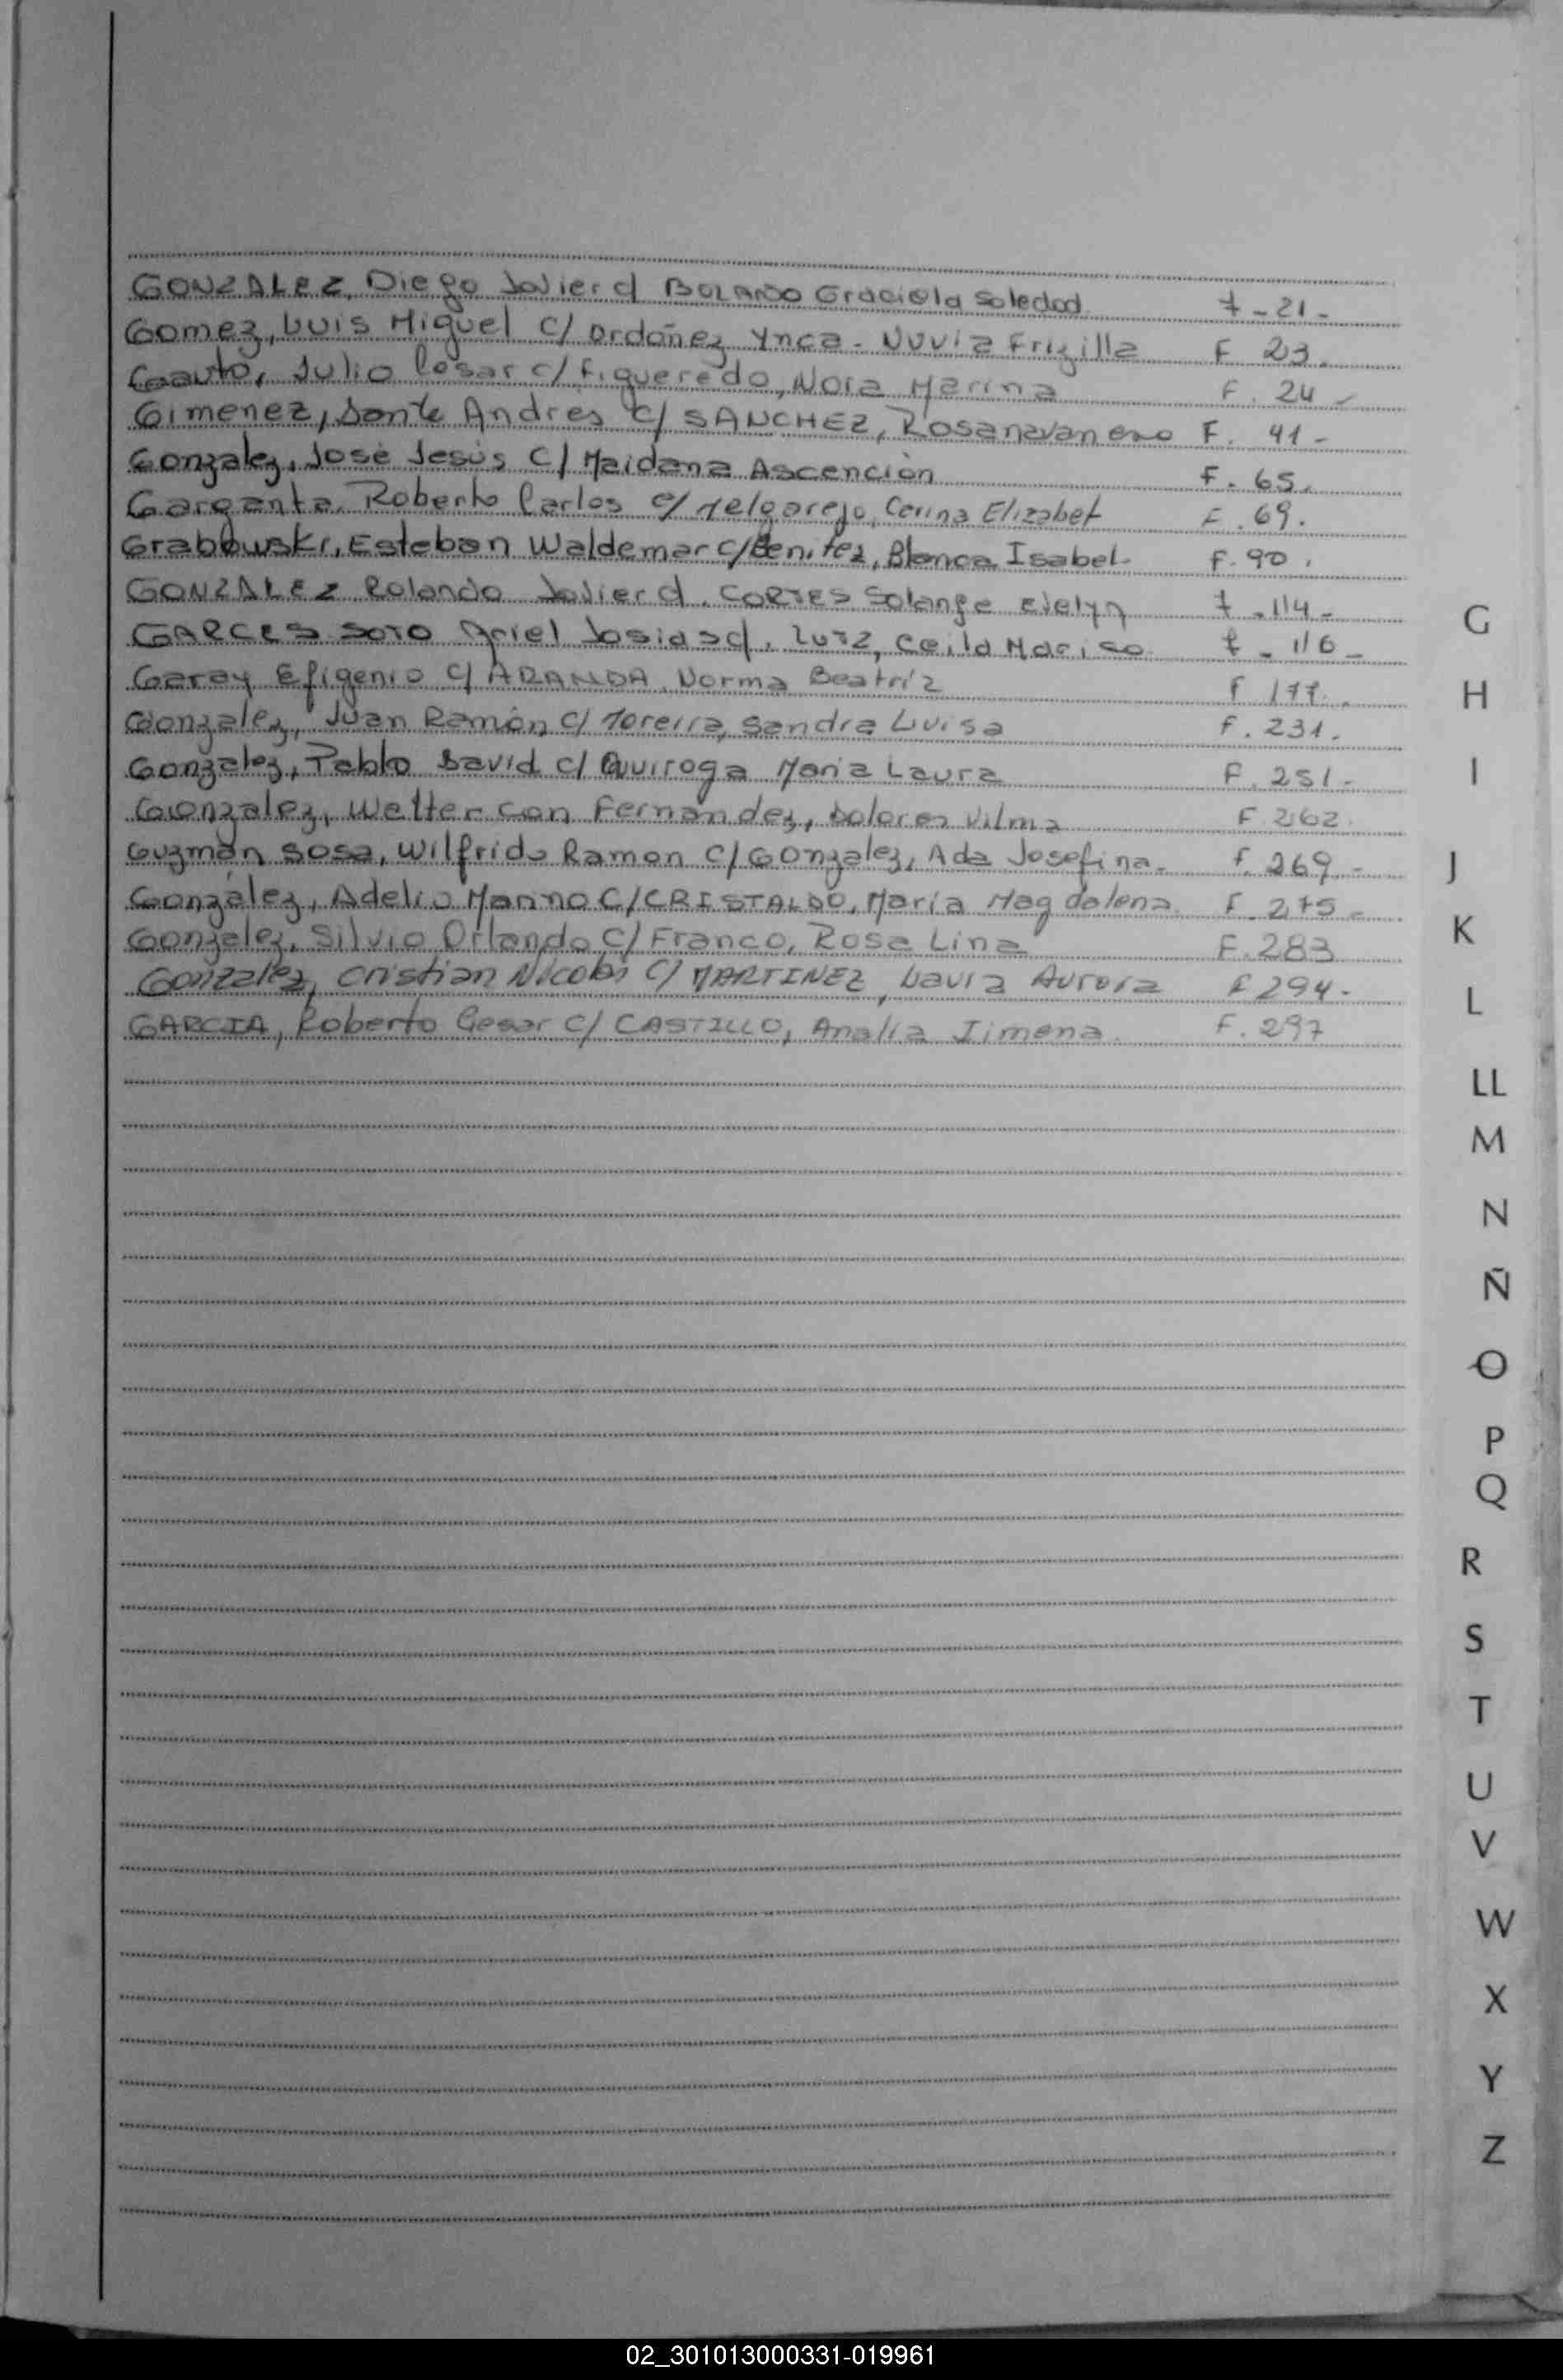 GONZALEZ, Diego Javier c/ BOLAÑO Graciela Soledad f - 21 -
Gomez, Luis Miguel c/ Ordoñez Ynca - Nuvia Frizilla F 23.
Gauto, Julio Cesar c/ Figueredo, Nora Marina F. 24 -
Gimenez, Dante Andrés c/ SANCHEZ, Rosana F. 41 -
Gonzalez, José Jesús C/ Maidana Ascención F. 65.
Garganta, Roberto Carlos c/ Melgarejo, Corina Elizabet F. 69.
Grabowski, Esteban Waldemar c/ Benitez, Blanca Isabel - F. 90.
GONZALEZ Rolando Javier c/. CORTES Solange Evelyn f - 114 -
GARCES SOTO Ariel Josias c/. f - 116 -
Garay Efigenio c/ ARANDA, Norma Beatríz f 177.
Gonzalez, Juan Ramón c/ Moreira, Sandra Luisa F. 231.
Gonzalez, Pablo David c/ Quiroga Maria Laura F. 251 -
Gonzalez, Walter con Fernandez, Dolores Vilma F 262.
Guzmán Sosa, Wilfrido Ramon C/ Gonzalez, Ada Josefina. f. 269. -
González, Adelio Marino C/ CRISTALDO, María Magdalena F. 275 -
Gonzalez, Silvio Orlando C/ Franco, Rosa Lina F. 283
Gonzalez, Cristian Nicolas C/ MARTINEZ, Laura Aurora F 294 -
GARCIA, Roberto Cesar C/ CASTILLO, Analía Jimena. F. 297
G
H
I
J
K
L
LL
M
N
Ñ
O
P
Q
R
S
T
U
V
W
X
Y
Z
02_301013000331-019961